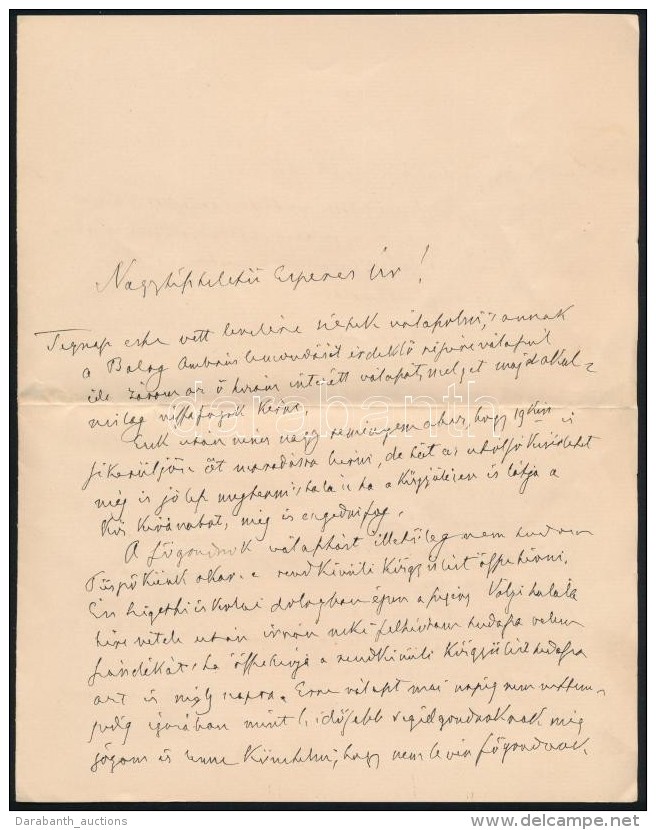 Nagytiszteletű Esperes Úr!
Tegnap este vett levelére sietek válaszolni, annak
a Balog Ambrus lemondását érdeklő részére válaszul
ide zárom az ő hozzám intézett válaszát, melyet majd alkal-
milag visszafogok kérni.
Ezek után nincs nagy reményem ahoz, hogy 19kén is
sikerüljön őt maradásra bírni, de hát az utolsó kisérletet
még is jó lesz megtenni, hátha ha a Közgyűlésen is látja a
köz kívánatot, még is engedni fog.
A főgondnok választást illetőleg nem tudom
Püspökünk akar-e rendkívüli Közgyűlést össze hívni.
Én szigethi iskolai dologban épen a
híre vétele után írván neki felhívtam tudassa velem
szándékát, ha össze hívja a rendkívüli Közgyűlést tudassa
azt is mely napra. Erre választ mai napig nem vettem,
pedig igazában mint legidősebb segédgondnoknak még
jogom is lenne követelni, hogy nem lévén főgondnok
darabanth
Darabanth_auctions
www.delcampe.net